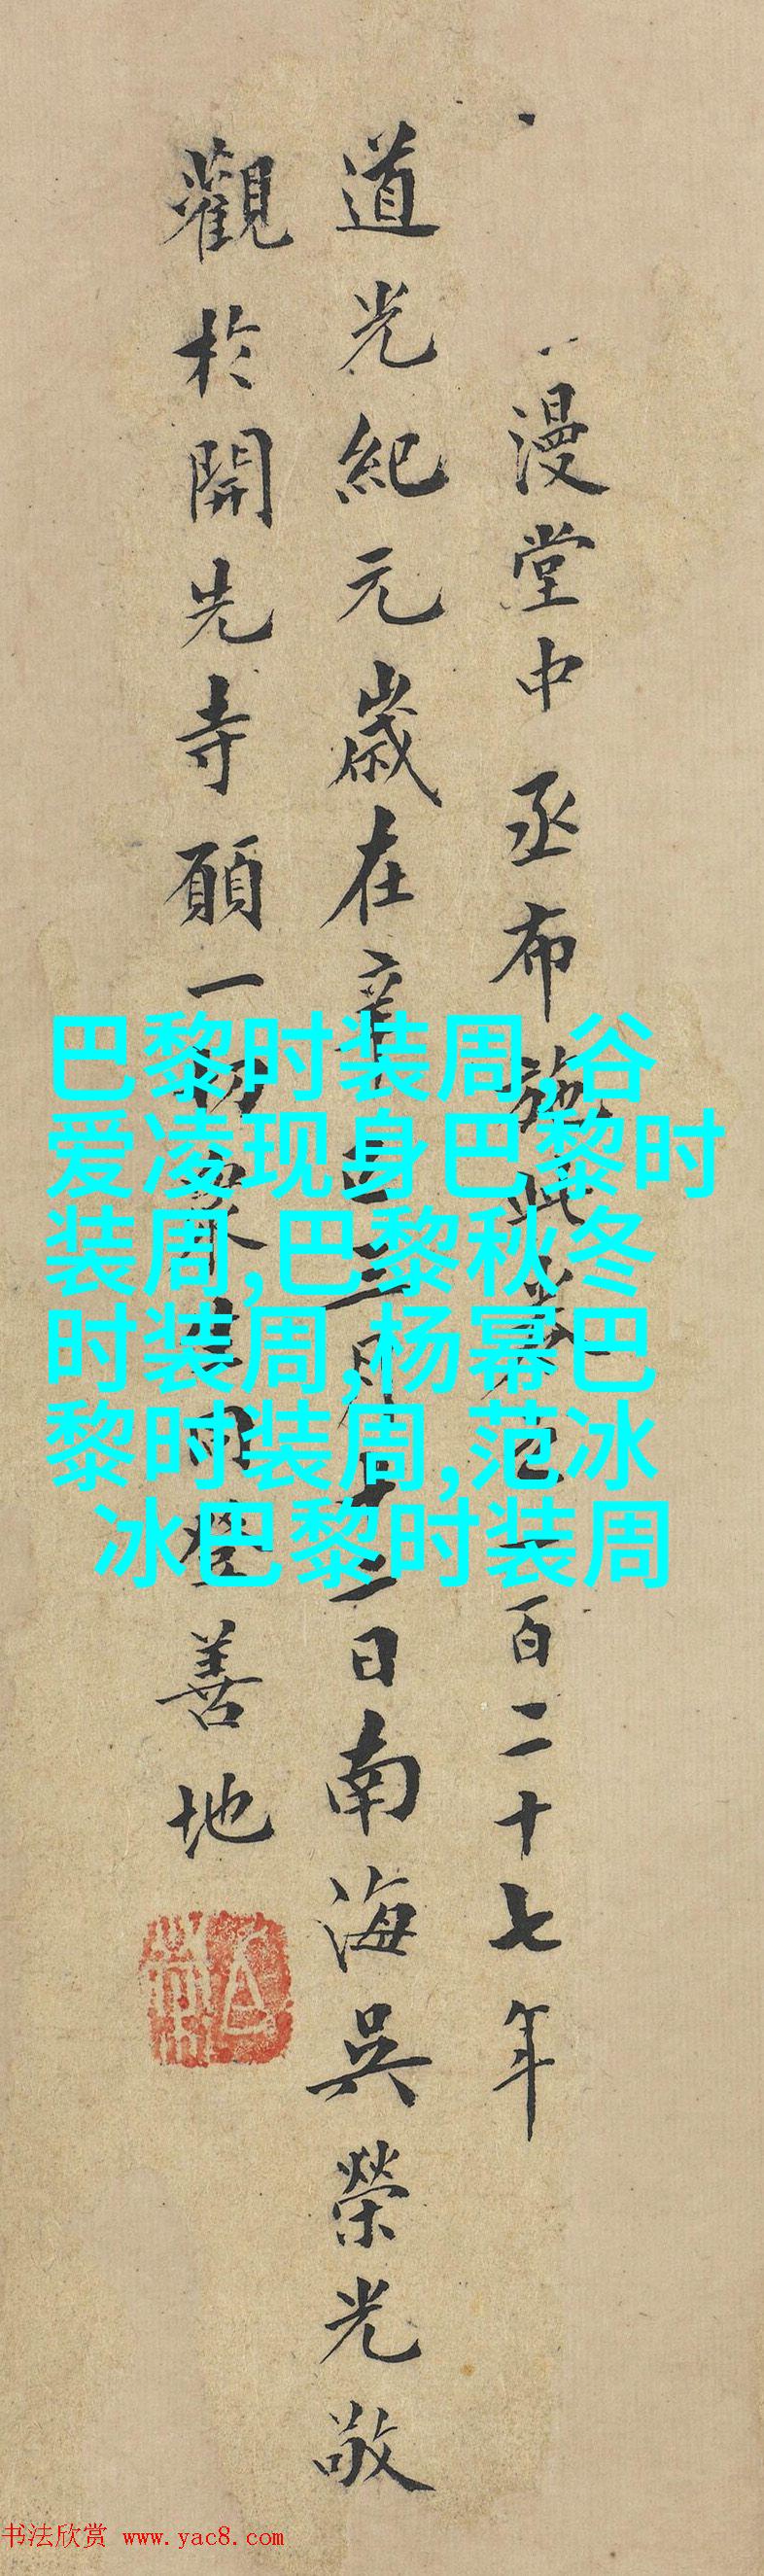 漫堂中丞布施此卷已一百二十七年
道光紀元歲在辛巳三月十二日南海吳榮光敬
觀於開先寺願一切眾生同登善地
巴黎时装周,谷
爱凌现身巴黎时
装周,巴黎秋冬
时装周,杨幂巴
黎时装周,范冰
冰巴黎时装周
书法欣赏 www.yac8.com